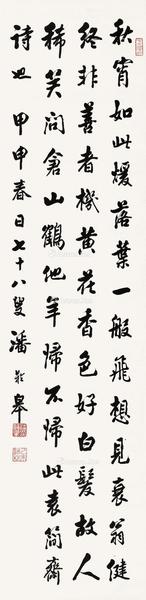 秋宵如此煖落葉一般飛想見衰翁健
終非善者機黄花香色好白髮故人
稀笑問倉山鶴他年歸不歸此袁簡齋
詩也 甲申春日七十八叟潘齡皋